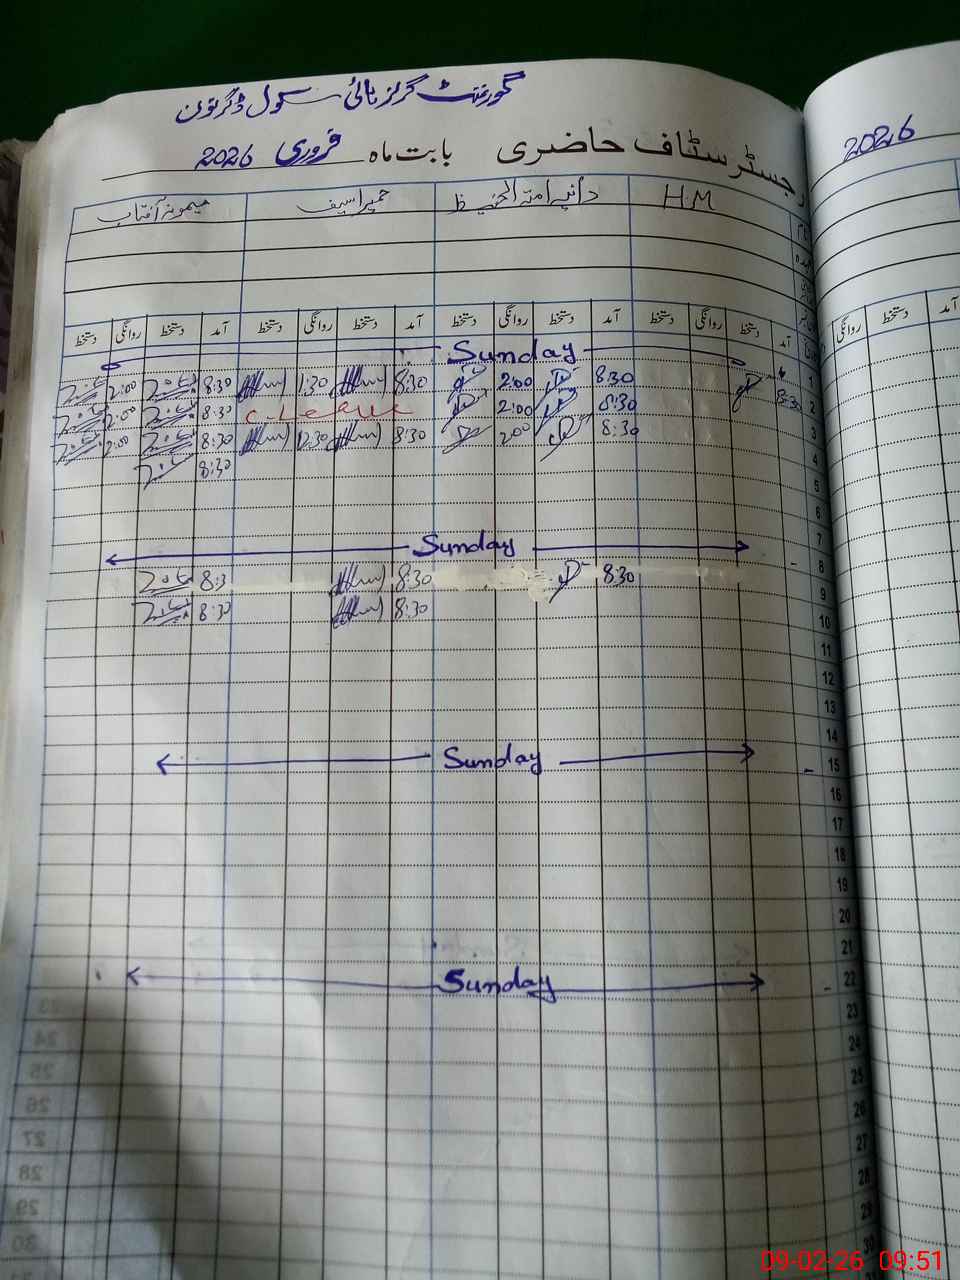 گورنمنٹ گرلز ہائی سکول ڈگرٹون
رجسٹر سٹاف حاضری بابت ماہ فروری 2026
2026
H.M دانیہ امتہ الحفیظ حمیرا سیف میمونہ آفتاب
آمد دستخط روانگی دستخط آمد دستخط روانگی دستخط آمد دستخط روانگی دستخط آمد دستخط روانگی دستخط
روانگی دستخط آمد
1 Sunday
2 8:30 8:30 2:00 8:30 1:30 8:30 2:00
3 8:30 2:00 C-Leave 8:30 2:00
4 8:30 2:00 8:30 12:30 8:30 2:00
5 8:30
6
7
8 Sunday
9 8:30 8:30 8:3
10 8:30 8:30
11
12
13
14
15 Sunday
16
17
18
19
20
21
22 Sunday
23
24
25
26
27
28
29
30
09-02-26 09:51